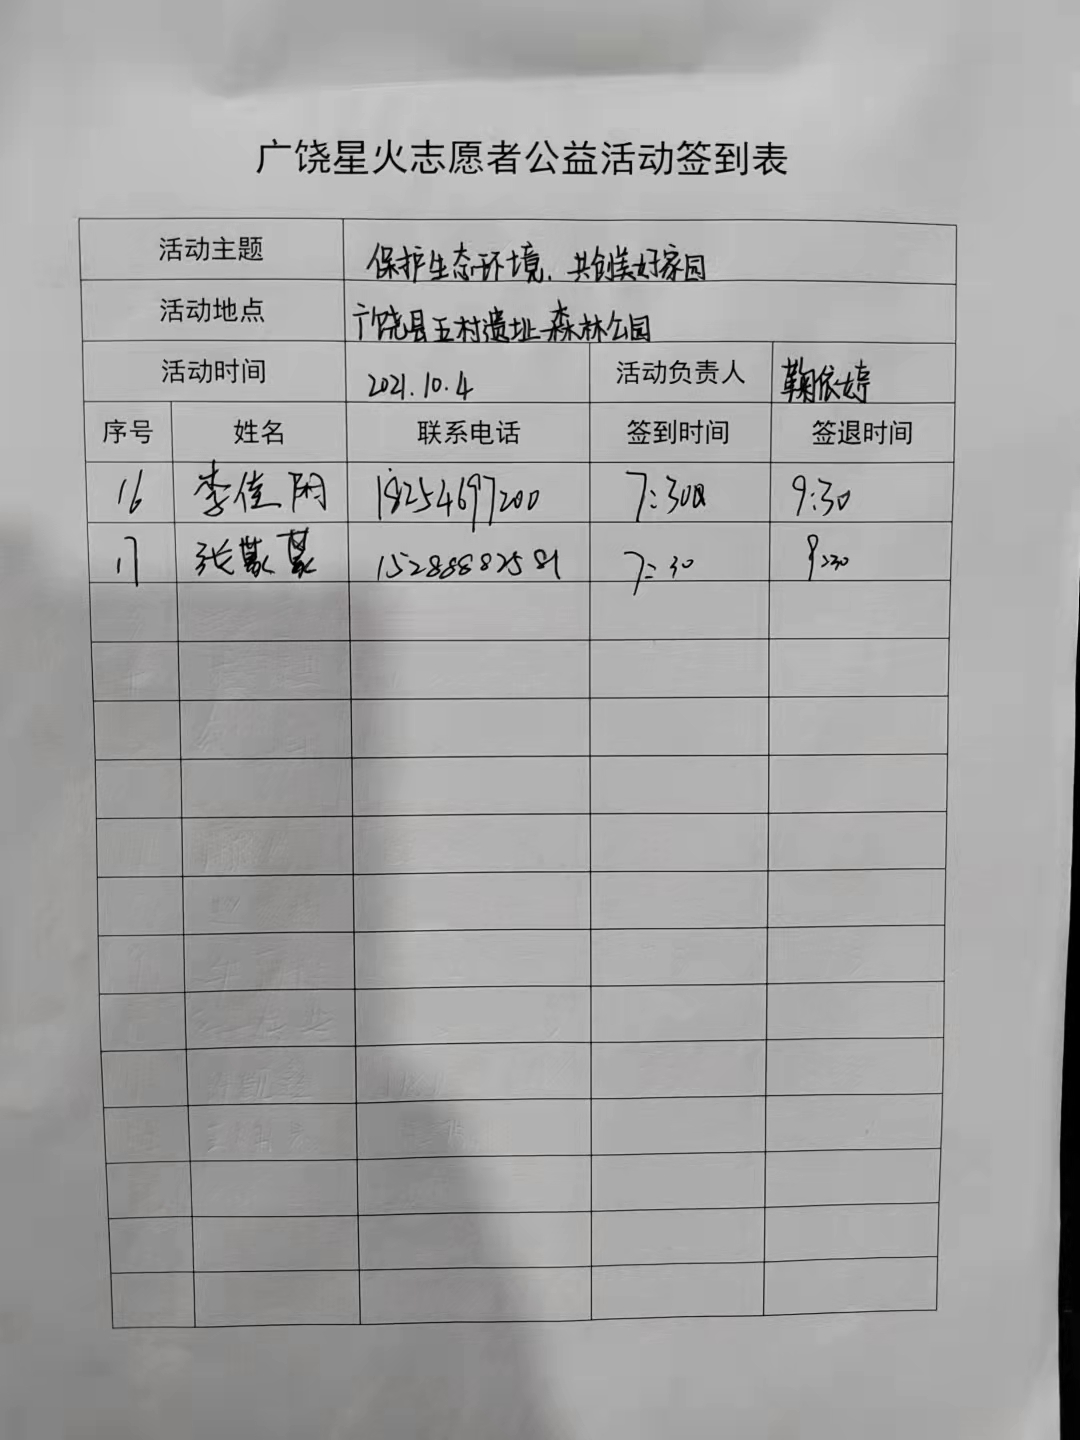 广饶星火志愿者公益活动签到表
活动主题 保护生态环境、共创美好家园
活动地点 广饶县五村遗址森林公园
活动时间 2021.10.4 活动负责人 鞠依婷
序号 姓名 联系电话 签到时间 签退时间
16 李佳闲 18254697200 7:30 9:30
17 张 15288882581 7:30 9:30